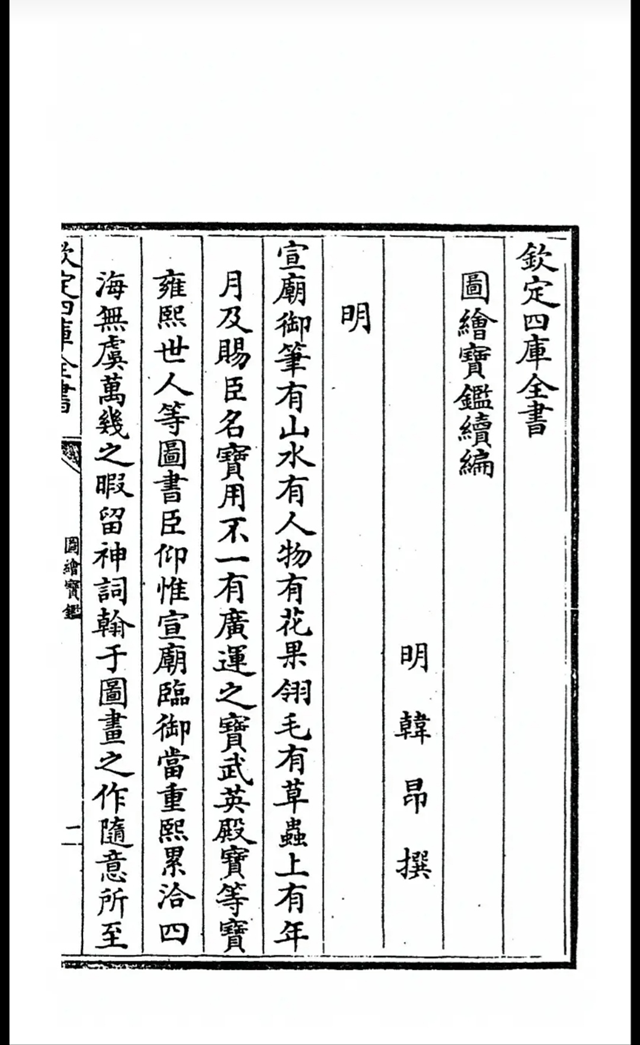 欽定四庫全書
圖繪寶鑑續編
明韓昂撰
明
宣廟御筆有山水有人物有花果翎毛有草蟲上有年
月及賜臣名寶用不一有廣運之寶武英殿寶等寶
雍熙世人等圖書臣仰惟宣廟臨御當重熙累洽四
海無虞萬幾之暇留神詞翰于圖畫之作隨意所至
欽定四庫全書
圖繪寶鑑
二